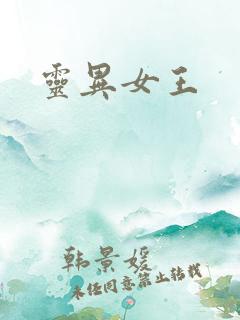 靈異女王
韩景媛
未经同意禁止转载